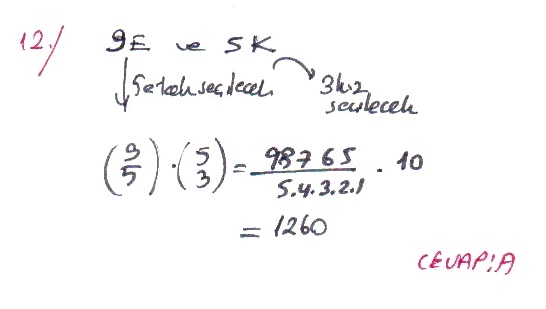 12./ 9E ve 5K
5 erkek seçilecek 3 kız
seçilecek
(9 5) · (5 3) = 9 8 7 6 5 / 5.4.3.2.1 · 10
= 1260
CEVAP: A